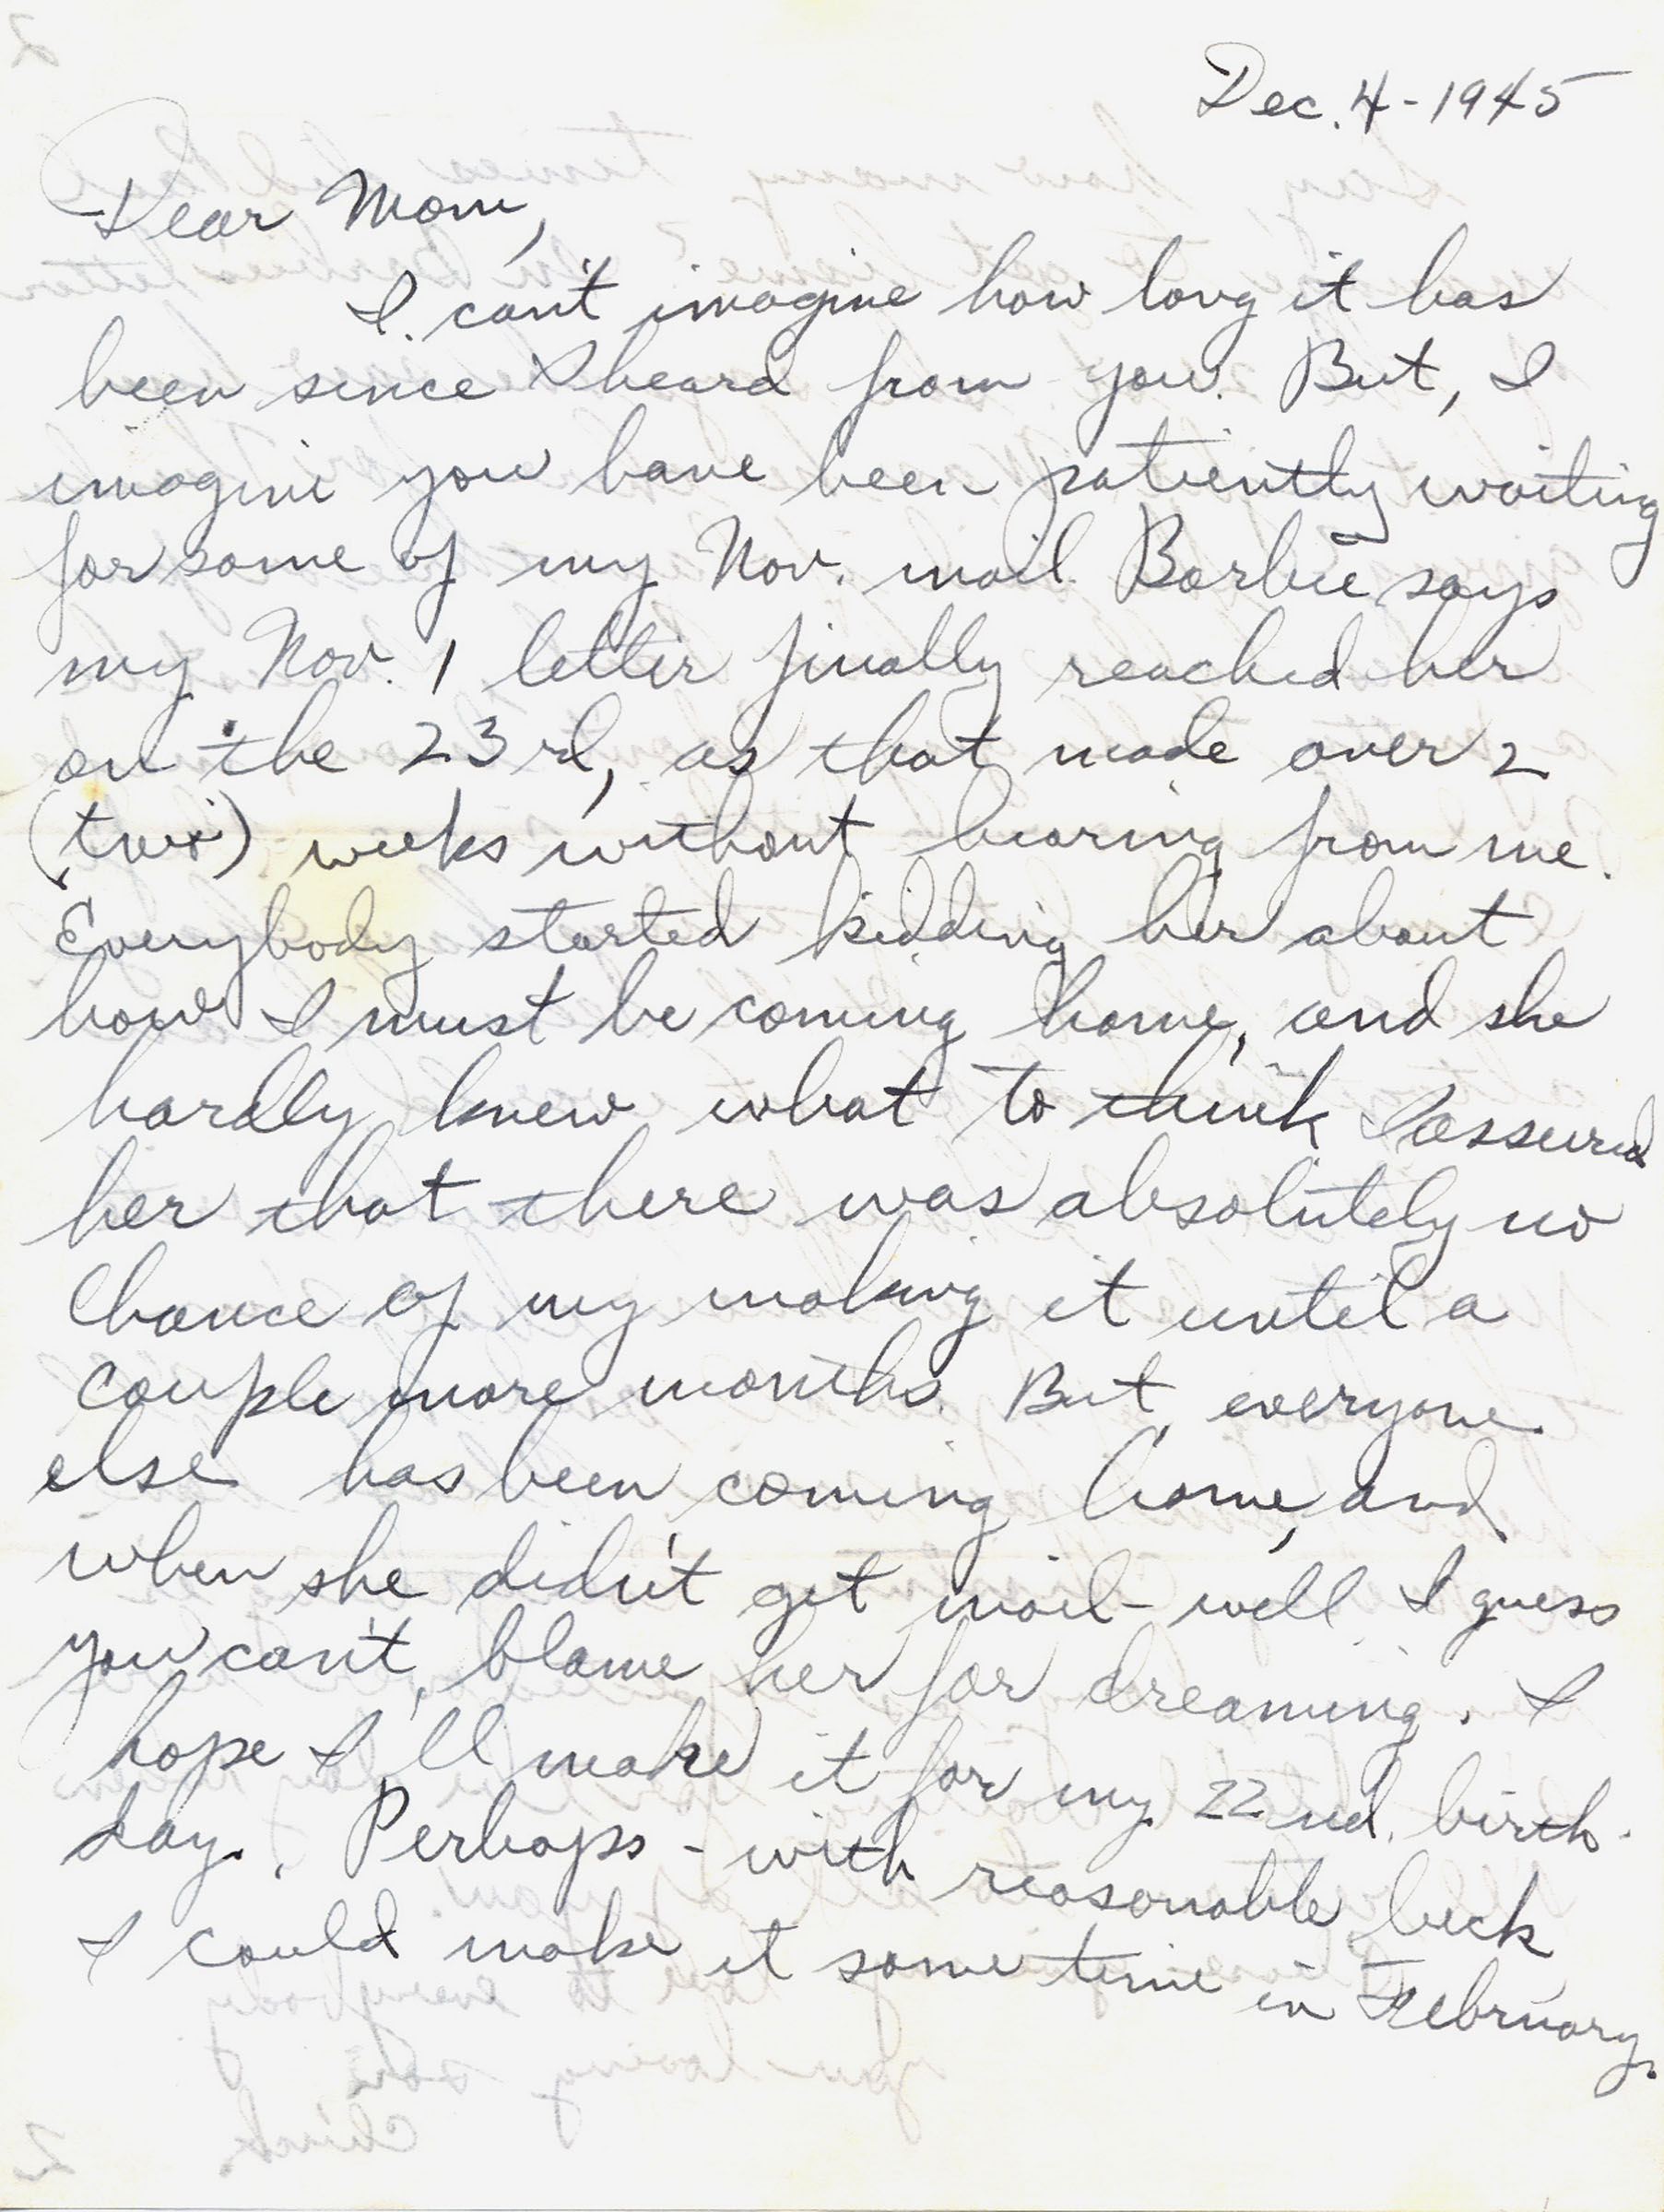 Dec. 4 - 1945
Dear Mom,
I can't imagine how long it has
been since I heard from you. But, I
imagine you have been patiently waiting
for some of my Nov. mail. Barbie says
my Nov. 1 letter finally reached her
on the 23rd, as that made over 2
(two) weeks without hearing from me.
Everybody started kidding her about
how I must be coming home, and she
hardly knew what to think I assured
her that there was absolutely no
chance of my making it until a
couple more months. But, everyone
else has been coming home, and
when she didn't get mail - well I guess
you can't, blame her for dreaming. I
hope I'll make it for my 22nd. birth-
day. Perhaps - with reasonable luck
I could make it some time in February.